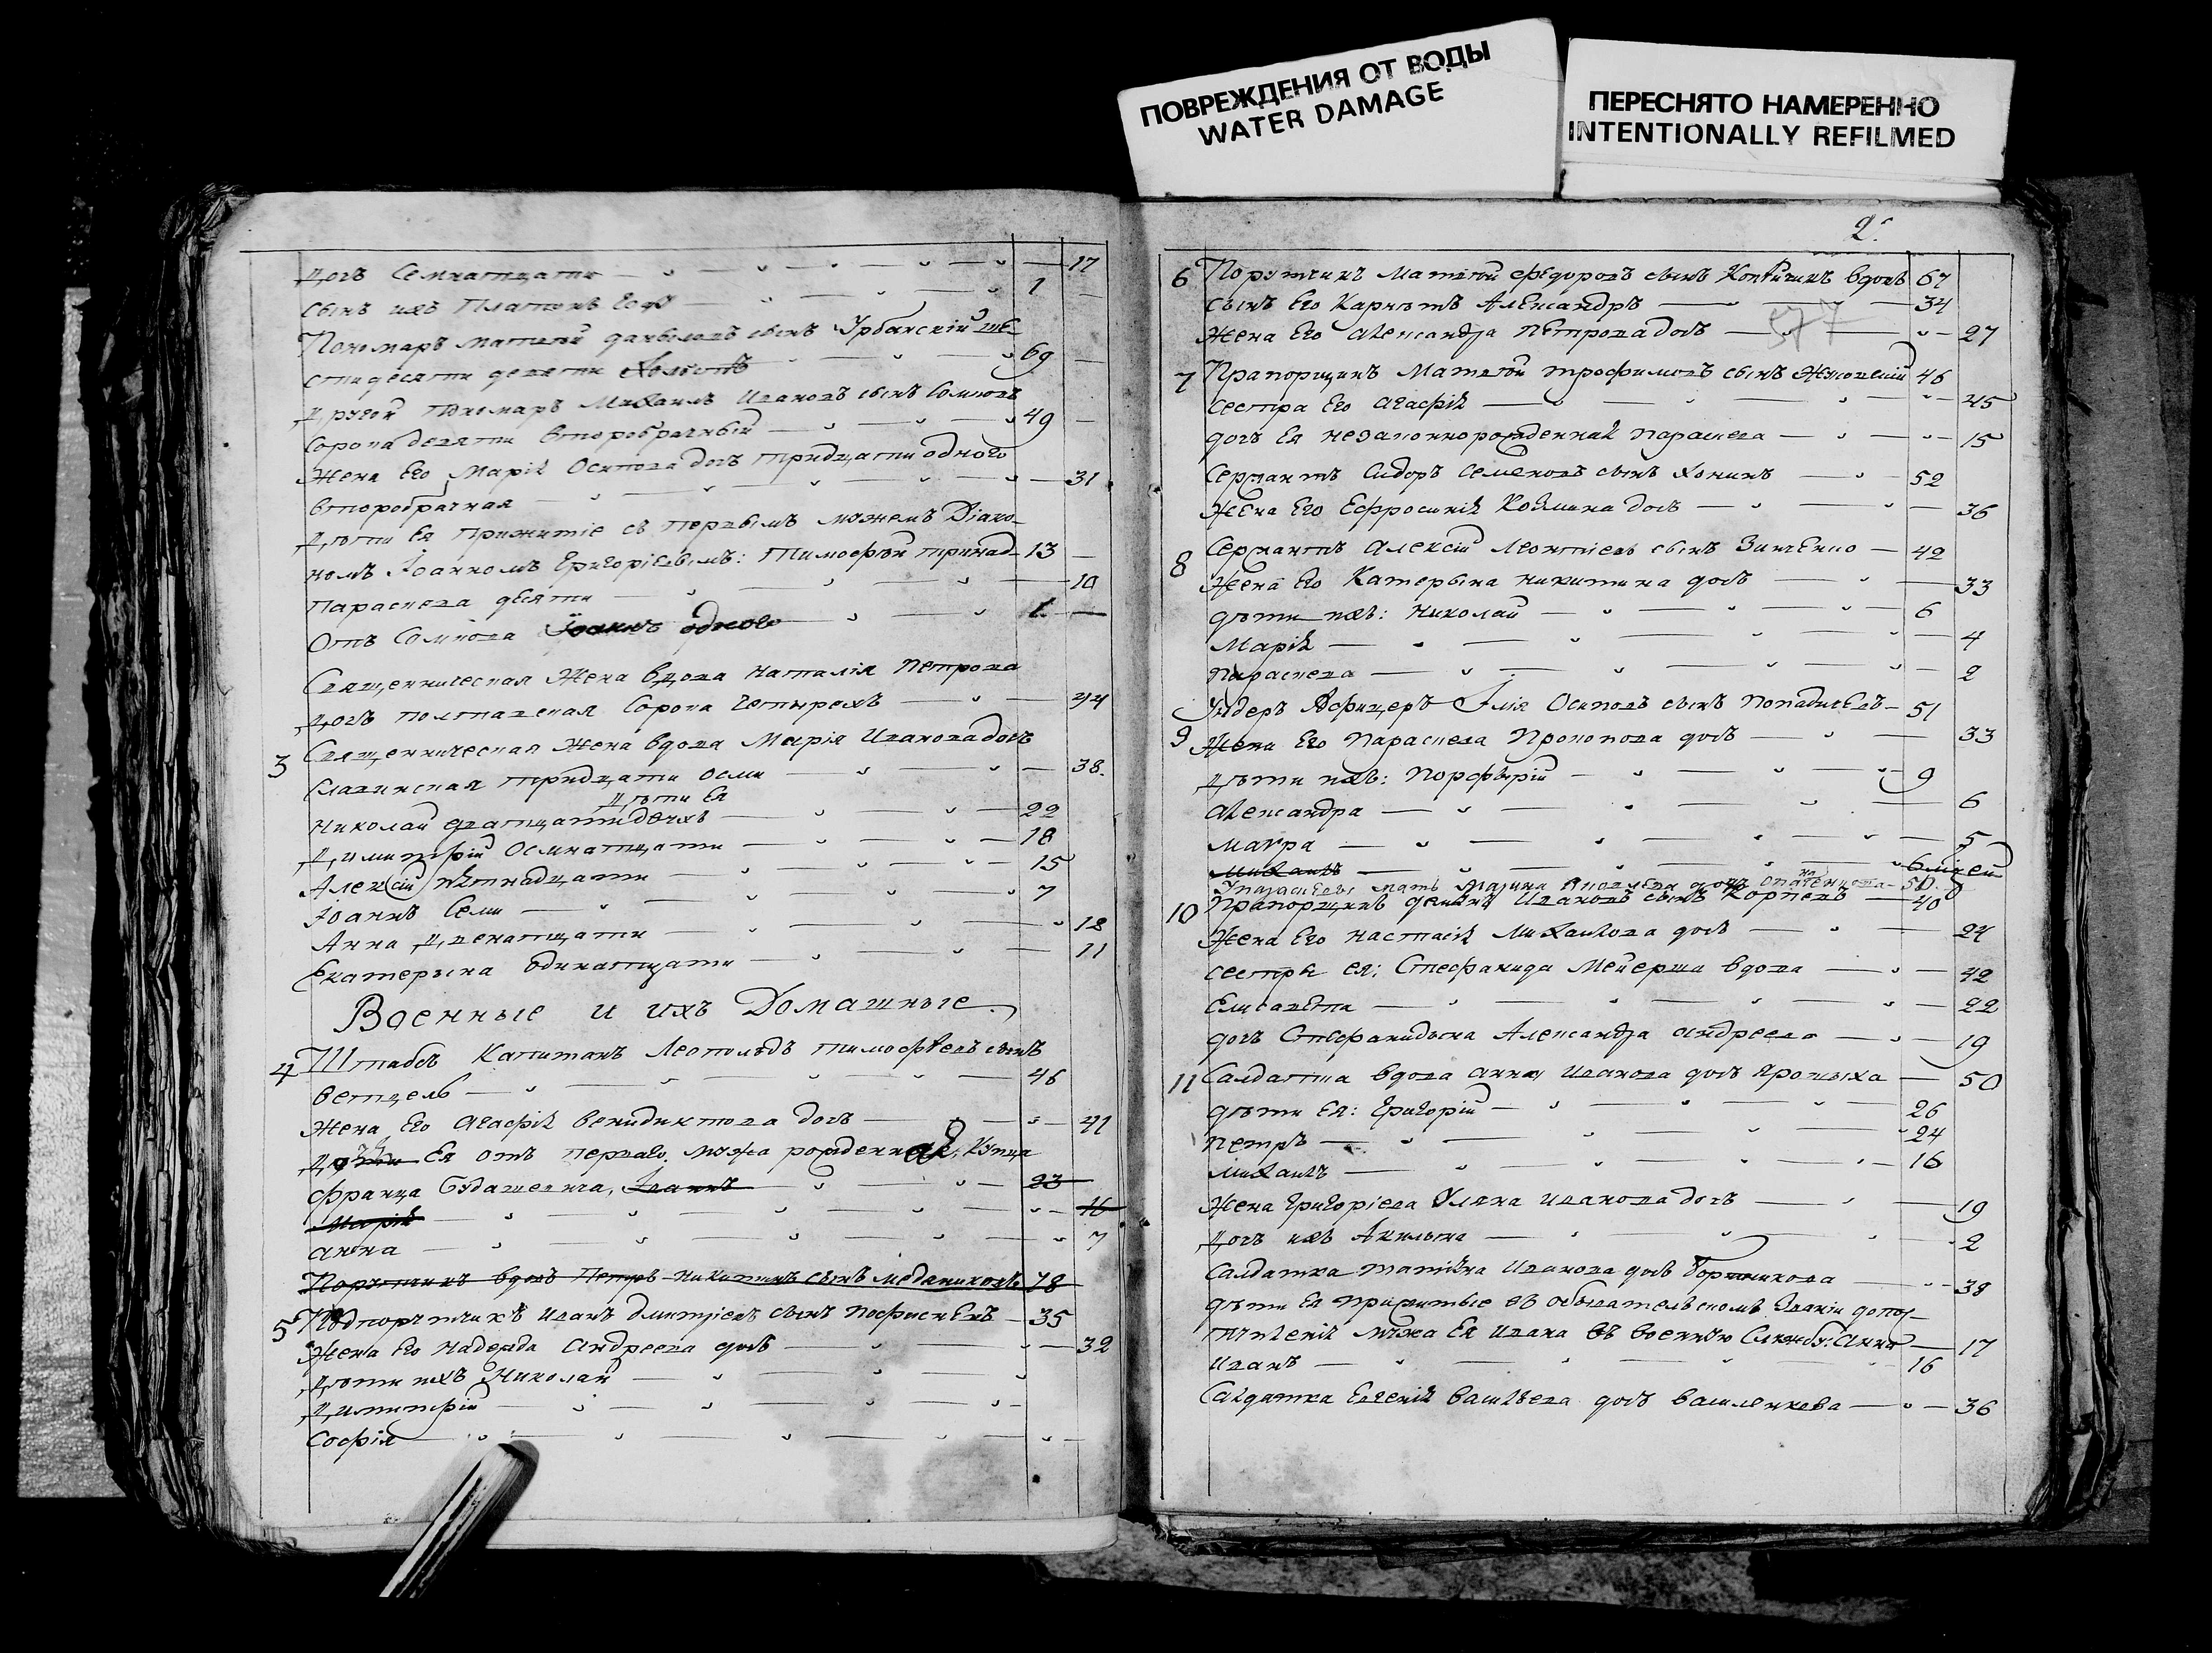 ПОВРЕЖДЕНИЯ ОТ ВОДЫ
WATER DAMAGE
ПЕРЕСНЯТО НАМЕРЕННО
INTENTIONALLY REFILMED
дочь Семнатцати 17
сынъ ихъ Платонъ 1
Пономарь Матвей даныловъ сынъ Урбанскій ше-
стидесяти девяти 69
Другой пономарь Михаилъ Ивановъ сынъ
Сорока девяти второбрачный 49
Жена Его Марія Осипова дочь тридцати одного
второбрачная 31
Дѣти Ея прижитіе съ первымъ мужемъ Діако-
номъ Іоанномъ Григорієвымъ: Тимофѣй тринад- 13
Параскева десяти 10
Отъ Сомкова Іоаннъ одного 1
Священническая Жена вдова Наталія Петрова
дочь полтавская Сорока Четырехъ 44
3 Священническая жена вдова Марія Иванова дочь
Славинская тридцати осми 38.
Дѣти Ея
Николай дватцати двохъ 22
Димитрій Осмнатцати 18
Алексій пятнадцати 15
Іоаннъ Семи 7
Анна Двенатцати 12
Екатерына Одинатцати 11
Военные и ихъ Домашные
4 Штабсъ Капитанъ Леопольдъ Тимофѣевъ сынъ
Ветцель 46
Жена Его Агафія Венидиктова дочь 41
Ея отъ перваго мужа рожденная, Купца
Франца Іоаннъ 23
Марія 16
анна 7
Поручикъ вдовъ Петръ Никитинъ сынъ Медяниковъ 78
5 Подпоручикъ Иванъ Дмитріевъ сынъ 35
Жена Его Надежда Андреева дочь 32
Дѣти ихъ Николай
Димитрій
Софія
2.
6 Поручикъ Матвей Федоровъ сынъ вдовъ 67
Сынъ Его Карнетъ Александръ 34
Жена Его Александра Петрова дочь 27
7 Прапорщикъ Матвей Трофимовъ сынъ 46
Сестра Его Агафія 45
дочь Ея незаконнорожденная Параскева 15
Сержантъ Сидоръ Семеновъ сынъ Хонинъ 52
Жена Его Ефросинія Козмина дочь 36
8 Сержантъ Алексій Леонтіевъ сынъ Зинченко 42
Жена Его Катерына Никитина дочь 33
дѣти ихъ: Николай 6
Марія 4
Параскева 2
9 Ундеръ Афицеръ Илія Осиповъ сынъ 51
Жена Его Параскева Прокопова дочь 33
Дѣти ихъ: Порфирій 9
Александра 6
Мавра 5
Михаилъ 6
мать Марина дочь 50.
10 Прапорщикъ Ивановъ сынъ 40
Жена Его Настасія Михайлова дочь 24
Сестры ея: Стефанида Мейерша вдова 42
Елисавета 22
дочь Стефанидына Александра Андреева 19
11 Салдатка вдова Анна Иванова дочь 50
дѣти Ея: Григорій 26
Петръ 24
Михаилъ 16
Жена Григоріева Уляна Иванова дочь 19
Дочь ихъ Акилына 2
Салдатка Татіяна Иванова дочь 38
дѣти Ея прижитые въ обывательскомъ Званіи до пос-
тупленія мужа Ея Ивана въ военную Службу: Анна 17
Иванъ 16
Салдатка Евгенія Васильева дочь Василенкова 36